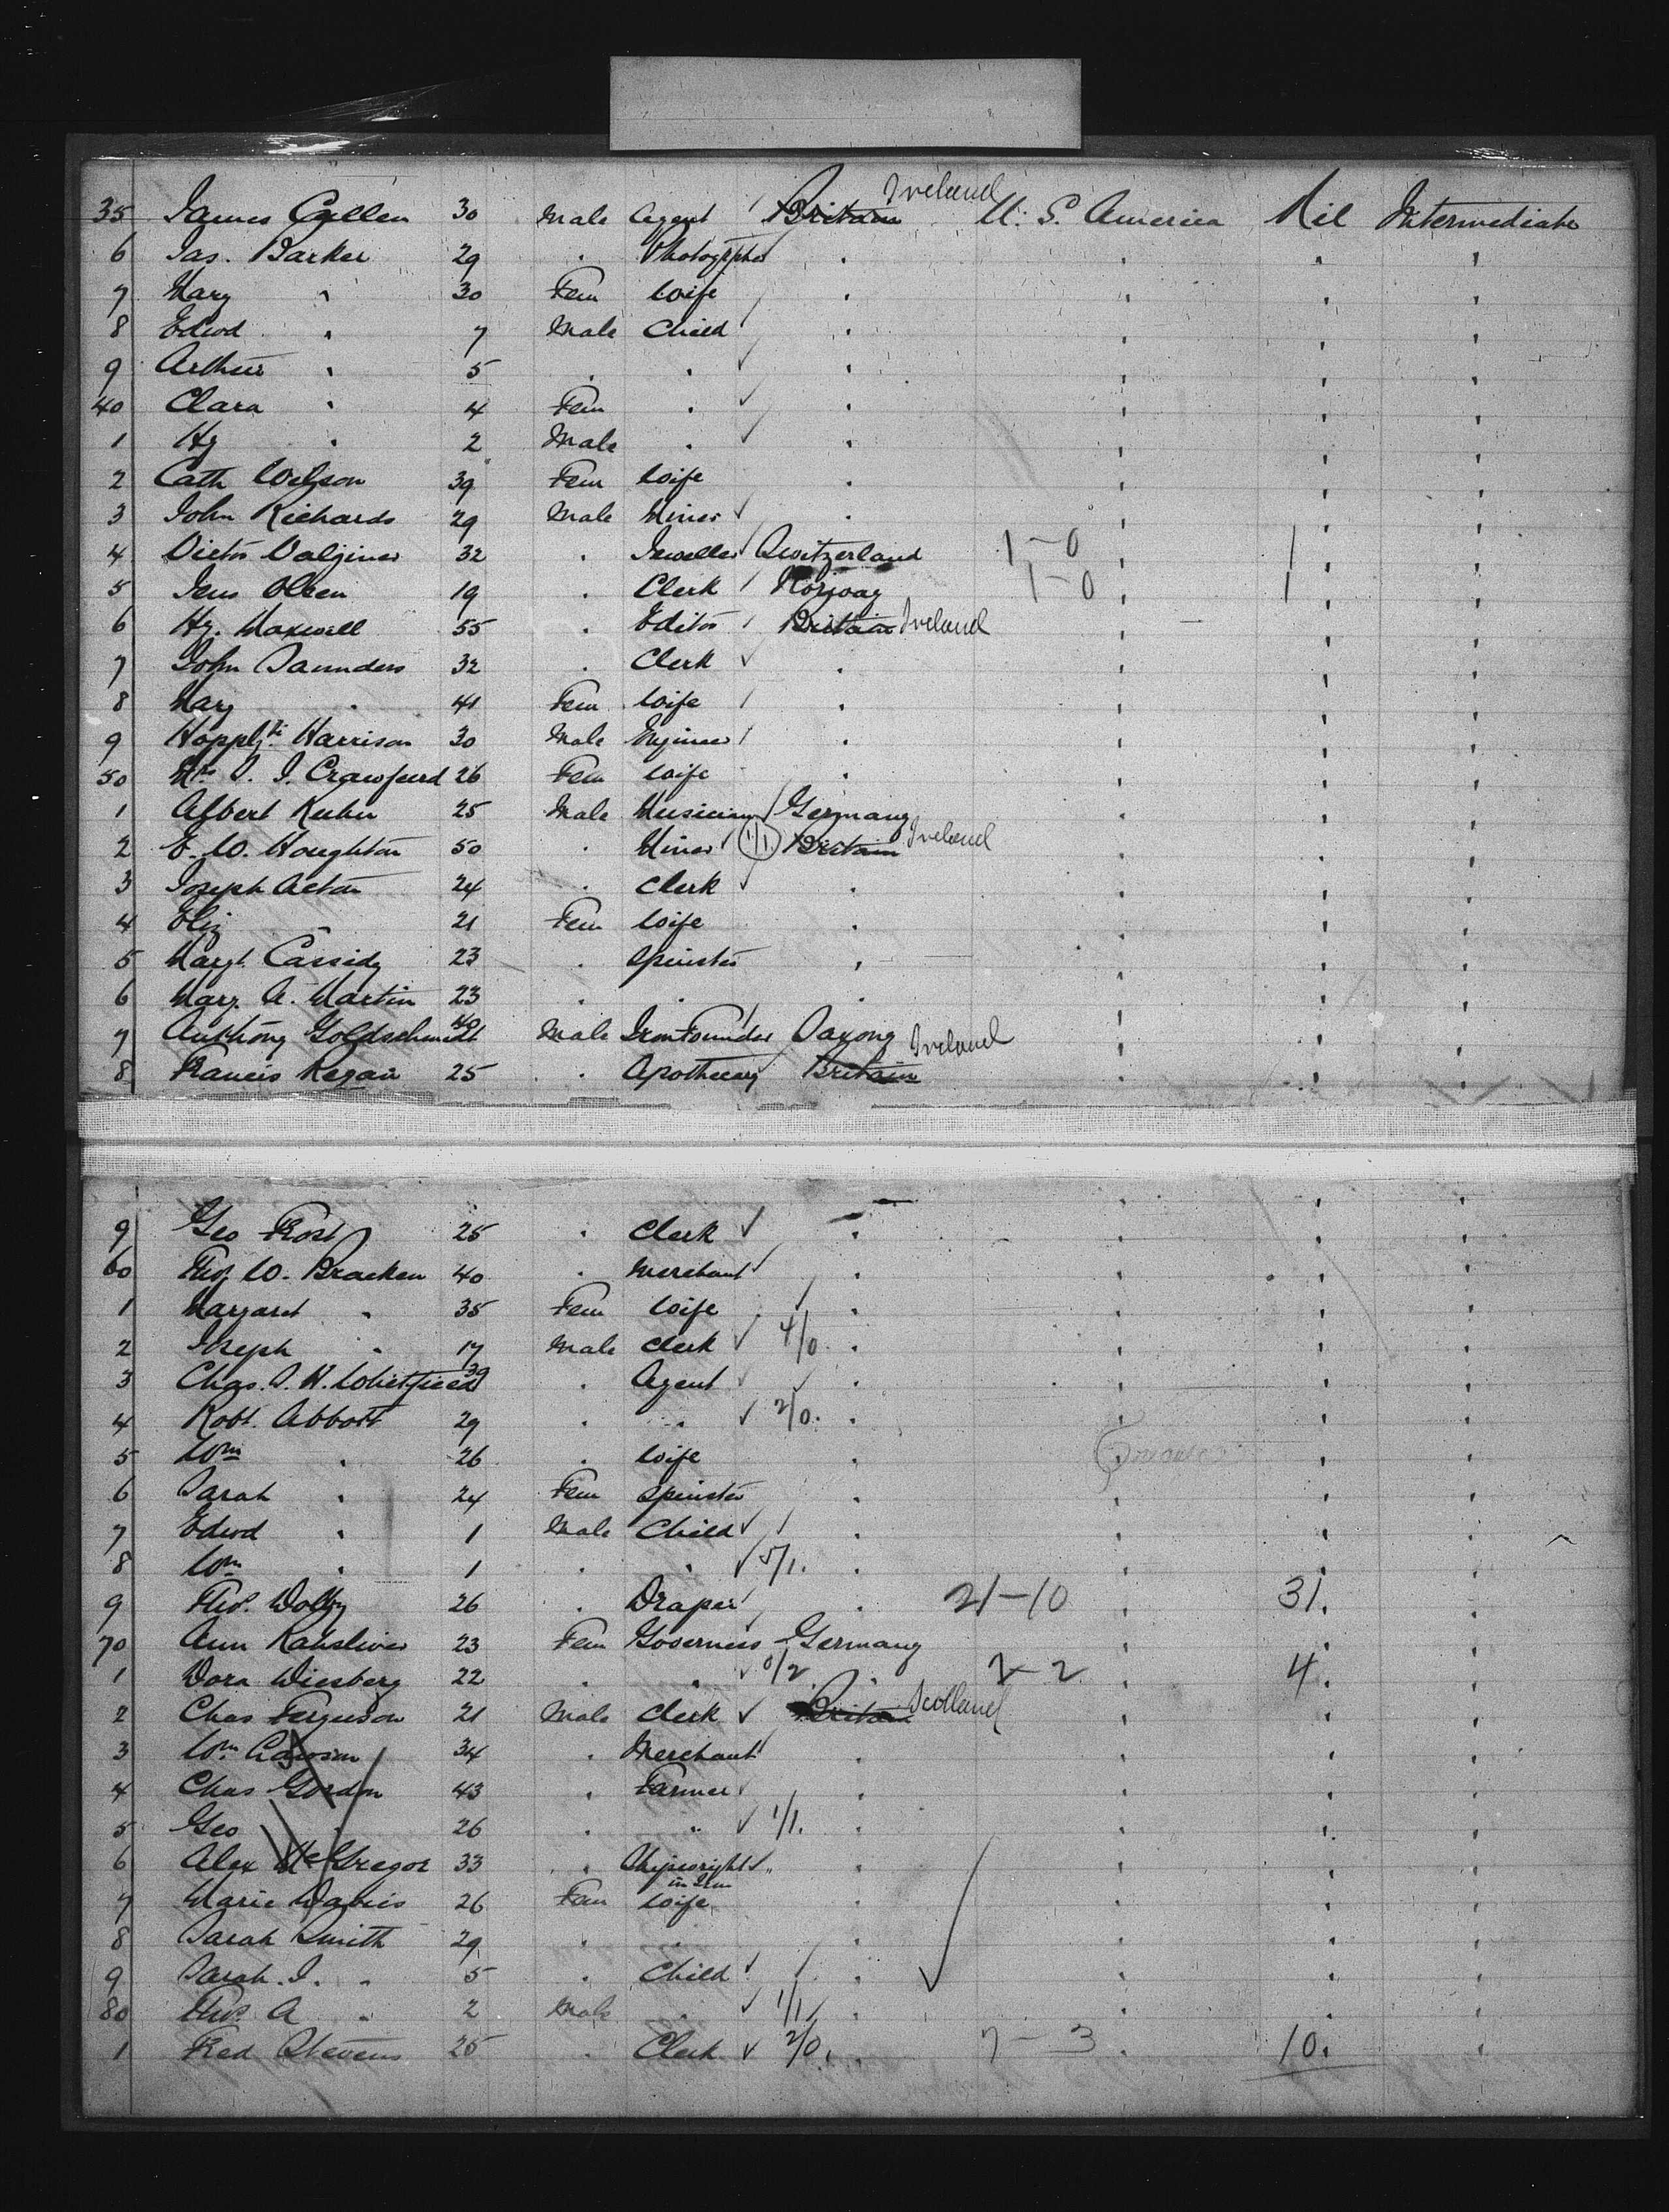 35 James Cullen 30 Male Agent Britain Ireland U. S. America Nil Intermediate
6 Jas. Barker 29 " Photographer " " " "
7 Mary " 30 Fem Wife " " " "
8 Edwd " 7 Male Child " " " "
9 Arthur " 5 " " " " " "
40 Clara " 4 Fem " " " " "
1 Hy " 2 Male " " " " "
2 Cath Wilson 39 Fem Wife " " " "
3 John Richards 29 Male Miner " " " "
4 Victor 32 " Jeweller Switzerland 1-0 " 1 " "
5 Jens Olsen 19 " Clerk Norway 1-0 " 1 " "
6 Hy. Maxwell 55 " Editor Britain Ireland " " "
7 John Saunders 32 " Clerk " " " "
8 Mary " 41 Fem Wife " " " "
9 Harrison 30 Male Engineer " " " "
50 Mrs Crawfurd 26 Fem Wife " " " "
1 Albert 25 Male Musician Germany " " "
2 E. W. Houghton 50 " Miner 1/1 Britain Ireland " " "
3 Joseph Acton 24 " Clerk " " " "
4 Eliz " 21 Fem Wife " " " "
5 Margt. Cassidy 23 " Spinster " " " "
6 Mary A. Martin 23 " " " " " "
7 Anthony Goldschmidt 40 Male Iron Founder Saxony " " "
8 Francis Regan 25 " Apothecary Britain Ireland " " "
9 Geo Frost 25 " Clerk " " " "
60 Thos W. Bracken 40 " Merchant " " " "
1 Margaret " 35 Fem Wife " " " "
2 Joseph " 17 Male Clerk 4/0 " " " "
3 Chas. S. H. Whitfield 39 " Agent " " " "
4 Robt. Abbott 29 " " 2/0 " " " "
5 Wm " 26 " Wife " " " "
6 Sarah " 24 Fem Spinster " " " "
7 Edwd " 1 Male Child " " " "
8 Wm " 1 " " 5/1 " " " "
9 Thos. Dolby 26 " Draper " 21-10 " 31 " "
70 Ann 23 Fem Governess Germany " " "
1 Dora Wiesberg 22 " " 0/2 " 2-2 " 4 " "
2 Chas Ferguson 21 Male Clerk Britain Scotland " " "
3 Wm 34 " Merchant " " " "
4 Chas Gordon 43 " Farmer " " " "
5 Geo " 26 " " 1/1 " " " "
6 Alex McGregor 33 " Shipwright " " " "
in Iron
7 Marie Davies 26 Fem Wife " " " "
8 Sarah Smith 29 " " " " " "
9 Sarah. J. " 5 " Child " " " "
80 Thos. A " 2 Male " 1/1 " " " "
1 Fred Stevens 25 " Clerk 2/0 " 7-3 " 10 " "